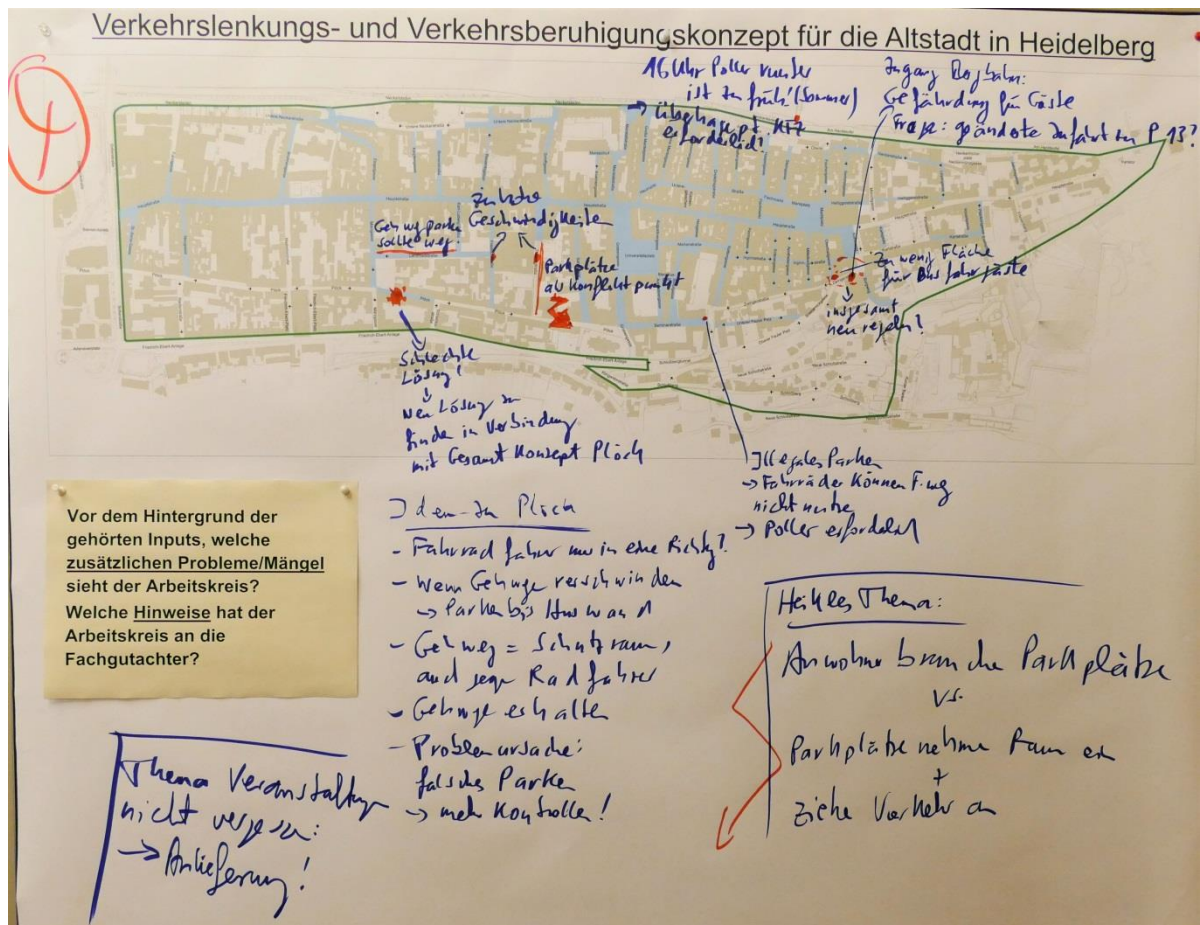 Verkehrslenkungs- und Verkehrsberuhigungskonzept für die Altstadt in Heidelberg
4
16 Uhr Poller runter
ist zu früh! (Sommer)
→ überhaupt KFZ
erforderlich?
Zugang Bergbahn:
Gefährdung für Gäste
Frage: geänderte Zufahrt zu P 13?
Gehwegparken
sollte weg!
Zu hohe
Geschwindigkeiten
Parkplätze
als Konfliktpunkt
Zu wenig Fläche
für Busfahrgäste
↓
insgesamt
neu regeln!
Schlechte
Lösung!
↓
neue Lösung zu
finden in Verbindung
mit Gesamt Konzept Plöck
Illegales Parken
→ Fahrräder können F.weg
nicht nutzen
→ Poller erforderlich
Vor dem Hintergrund der
gehörten Inputs, welche
zusätzlichen Probleme/Mängel
sieht der Arbeitskreis?
Welche Hinweise hat der
Arbeitskreis an die
Fachgutachter?
Ideen zu Plöck
- Fahrradfahrer nur in eine Richtg?
- Wenn Gehwege verschwinden
→ Parken bis Hauswand
- Gehweg = Schutzraum,
auch gegen Radfahrer
- Gehwege erhalten
- Problemursache:
falsches Parken
→ mehr Kontrollen!
Heikles Thema:
Anwohner brauchen Parkplätze
vs.
Parkplätze nehmen Raum ein
+
ziehen Verkehr an
Thema Veranstaltungen
nicht vergessen:
→ Anlieferung!